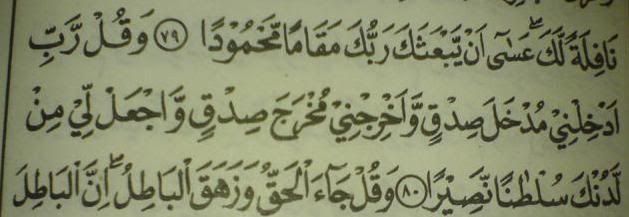 نَافِلَةً لَّكَ ۖ عَسٰۤى اَنْ يَّبْعَثَكَ رَبُّكَ مَقَامًا مَّحْمُوْدًا ﴿۷۹﴾ وَقُلْ رَّبِّ
اَدْخِلْنِيْ مُدْخَلَ صِدْقٍ وَّاَخْرِجْنِيْ مُخْرَجَ صِدْقٍ وَّاجْعَلْ لِّيْ مِنْ
لَّدُنْكَ سُلْطٰنًا نَّصِيْرًا ﴿۸۰﴾ وَقُلْ جَآءَ الْحَقُّ وَزَهَقَ الْبَاطِلُ ۖ اِنَّ الْبَاطِلَ